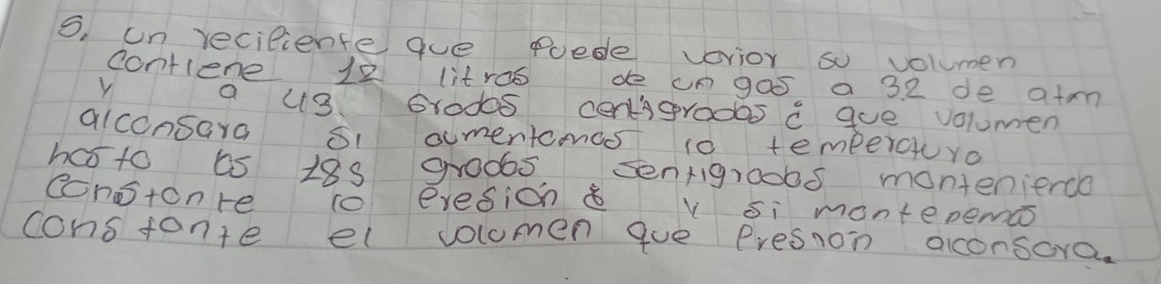 5. un recipiente que puede varior su volumen
contiene 12 litros de un gas a 3.2 de atm
y a 43 Grados centigrados ¿ que volumen
alconsara si aumentamos la temperatura
hasta los 183 grados sentigrados mantenienco
constante la presión & y si mantenemos
constante el volumen que Presion alconsara.